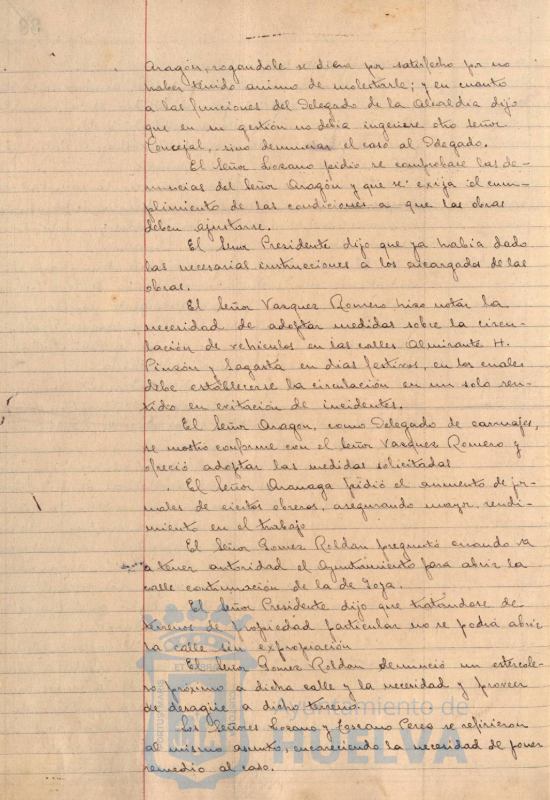 Aragón, rogandole se diera por satisfecho por no
haber tenido animo de molestarle; y en cuanto
a las funciones del Delegado de la Alcaldia dijo
que en su gestión no debia ingerirse otro señor
Concejal, sino denunciar el caso al Delegado.
El Señor Lozano pidió se comprobase las de-
nuncias del Señor Aragón y que se exija el cum-
plimiento de las condiciones a que las obras
deben ajustarse.
El Señor Presidente dijo que ya habia dado
las necesarias instrucciones a los encargados de las
obras.
El Señor Vazquez Romero hizo notar la
necesidad de adoptar medidas sobre la circu-
lación de vehiculos en las calles Almirante H.
Pinzón y Sagasta en dias festivos, en los cuales
debe establecerse la circulación en un solo sen-
tido en evitación de incidentes.
El Señor Aragón, como Delegado de carruajes,
se mostró conforme con el Señor Vazquez Romero y
ofreció adoptar las medidas solicitadas
El Señor pidió el aumento de jor-
nales de ciertos obreros, asegurando mayor rendi-
miento en el trabajo
El Señor Gomez Roldan preguntó cuando va
a tener autoridad el Ayuntamiento para abrir la
calle continuación de la de Goya.
El Señor Presidente dijo que tratandose de
terrenos de propiedad particular no se podrá abrir
la calle sin expropiación
El Señor Gomez Roldan denunció un estercole-
ro próximo a dicha calle y la necesidad y proveer
de desagüe a dicho terreno
Los Señores Lozano y Lozano Cerea se refirieron
al mismo asunto, encareciendo la necesidad de poner
remedio al caso.
Ayuntamiento de
HUELVA